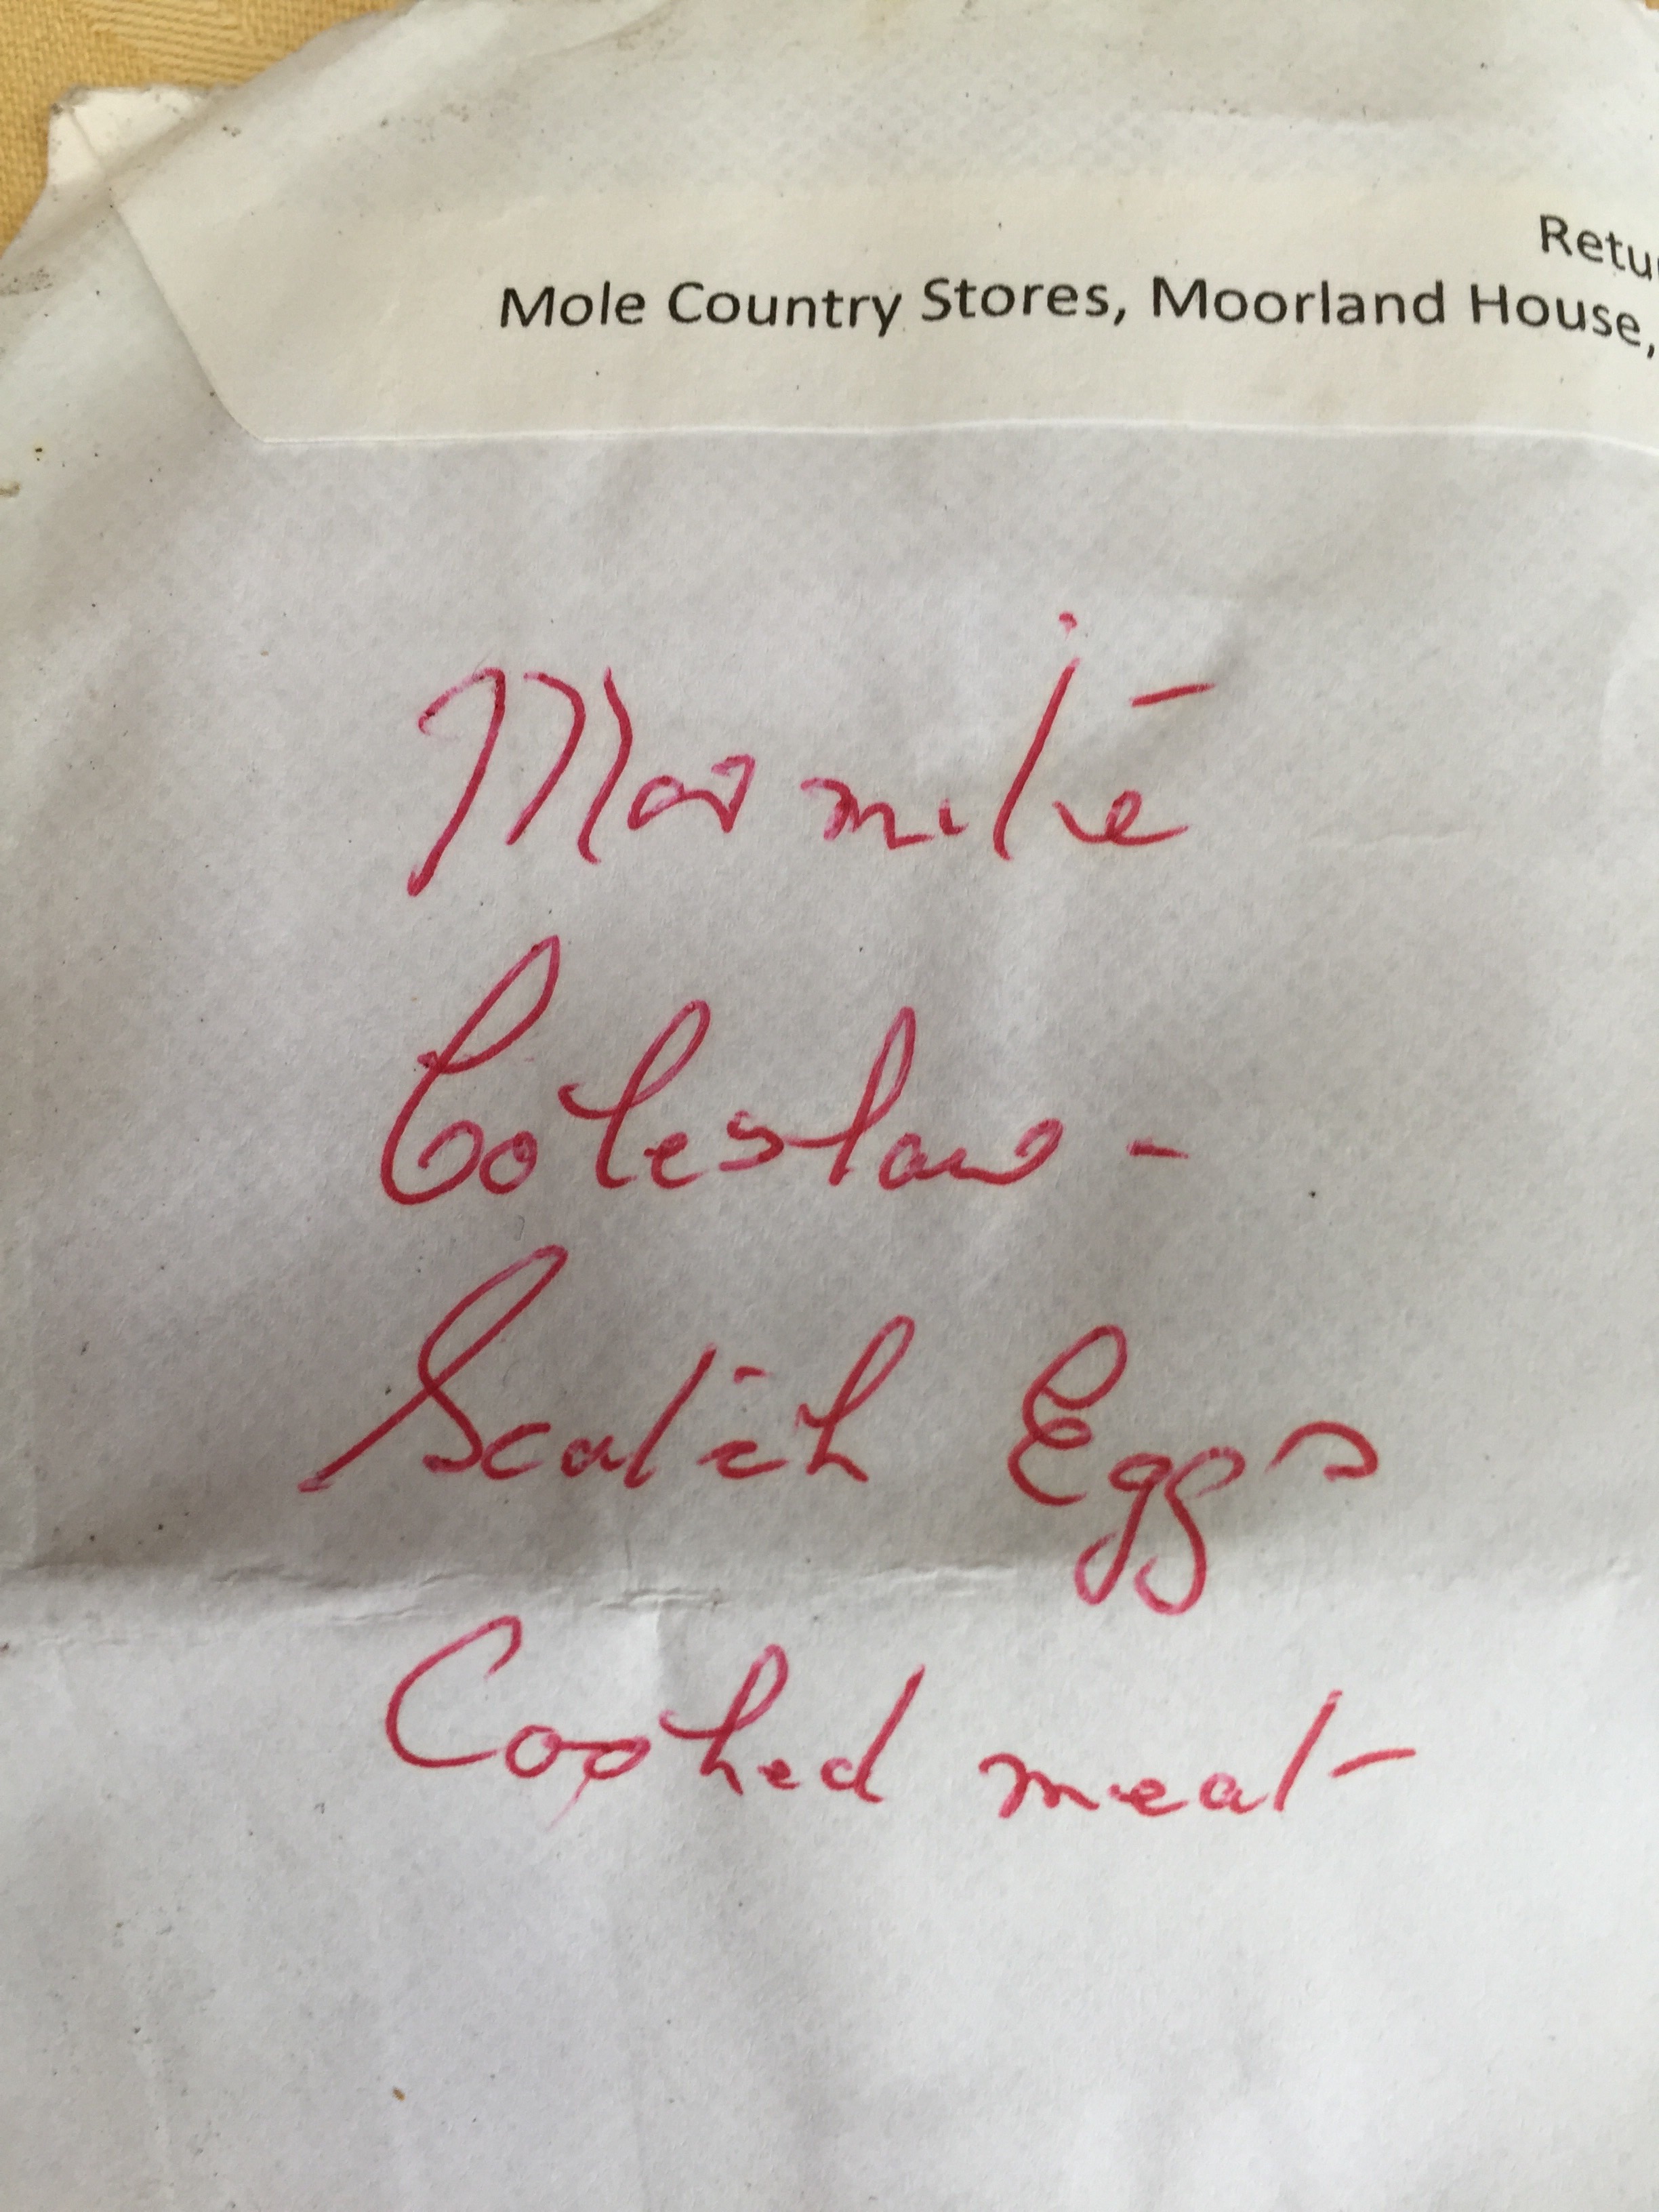 Retu
Mole Country Stores, Moorland House,
Marmite
Coleslaw -
Scotch Eggs
Cooked meat